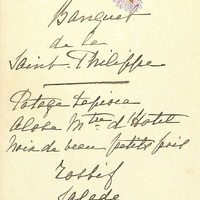 Banquet
de la
Saint-Philippe
Potage tapioca
Alose Mtre d'Hôtel
Noix de veau petits pois
Rosbif
Salade